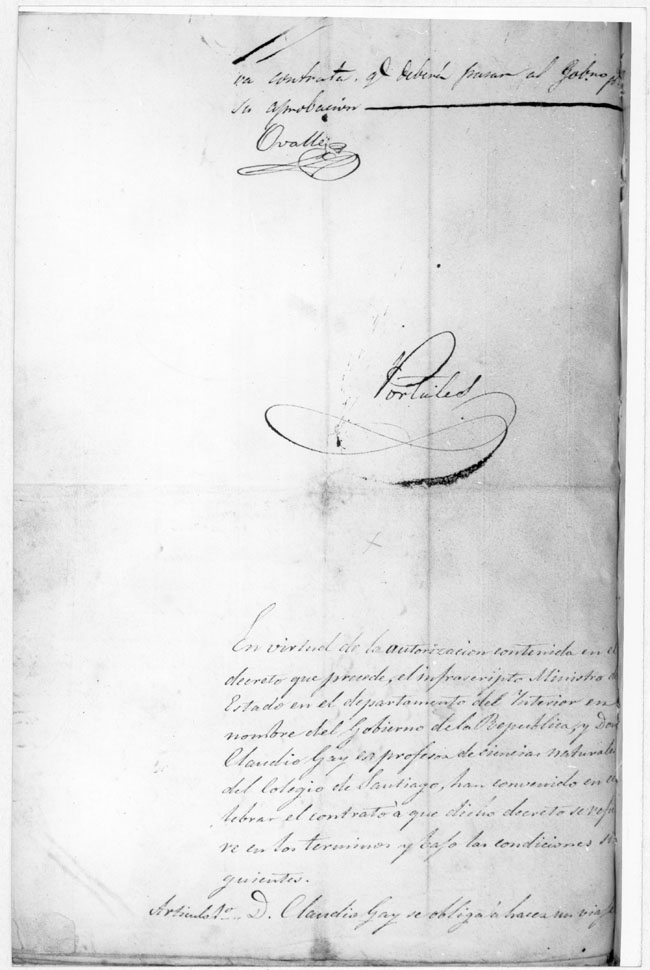 va contrata. q.e deberá pasar al Gob.no p.a
su aprobacion
Ovalle
Portales
En virtud de la autorizacion contenida en el
decreto que precede, el infrascripto Ministro de
Estado en el departamento del Interior en
nombre del Gobierno de la Republica, y Don
Claudio Gay ex profesor de ciencias naturales
del Colegio de Santiago, han convenido en ce
lebrar el contrato a que dicho decreto se refie
re en los terminos y bajo las condiciones si
guientes.
Articulo 1º D. Claudio Gay se obliga á hacer un viaje